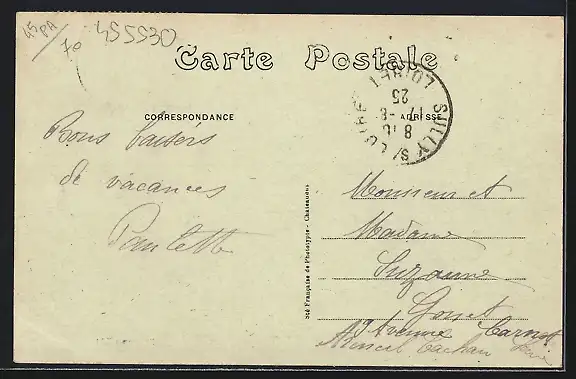 45PA
70
455530
Carte Postale
CORRESPONDANCE
ADRESSE
SULLY S/ LOIRE LOIRET
8 10
17 -8
25
Bons baisers
de vacances
Paulette
Sté Française de Phototypie - Chateaudun
Monsieur et
Madame
Suzanne
Gonet
Avenue Carnot